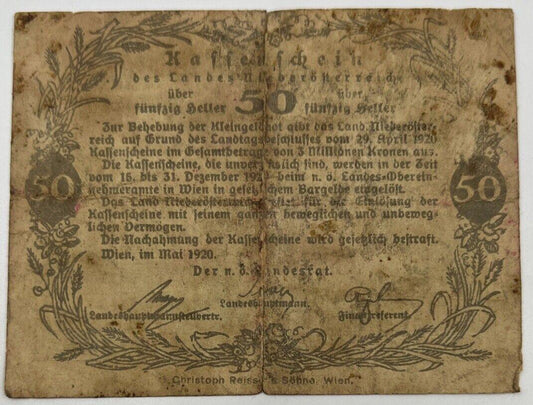 Kassenschein
des Landes Niederösterreich
über 50 über
fünfzig Heller fünfzig Heller
Zur Behebung der Kleingeldnot gibt das Land Niederöster-
reich auf Grund des Landtagsbeschlusses vom 29. April 1920
Kassenscheine im Gesamtbetrage von 3 Millionen Kronen aus.
Die Kassenscheine, die unverzinslich sind, werden in der Zeit
vom 16. bis 31. Dezember 1920 beim n. ö. Landes-Oberein-
nehmeramte in Wien in gesetzlichem Bargelde eingelöst.
Das Land Niederösterreich haftet für die Einlösung der
Kassenscheine mit seinem ganzen beweglichen und unbeweg-
lichen Vermögen.
Die Nachahmung der Kassenscheine wird gesetzlich bestraft.
Wien, im Mai 1920.
Der n. ö. Landesrat.
50 50
Landeshauptmann.
Landeshauptmannstellvertr. Finanzreferent.
Christoph Reisser's Söhne, Wien.